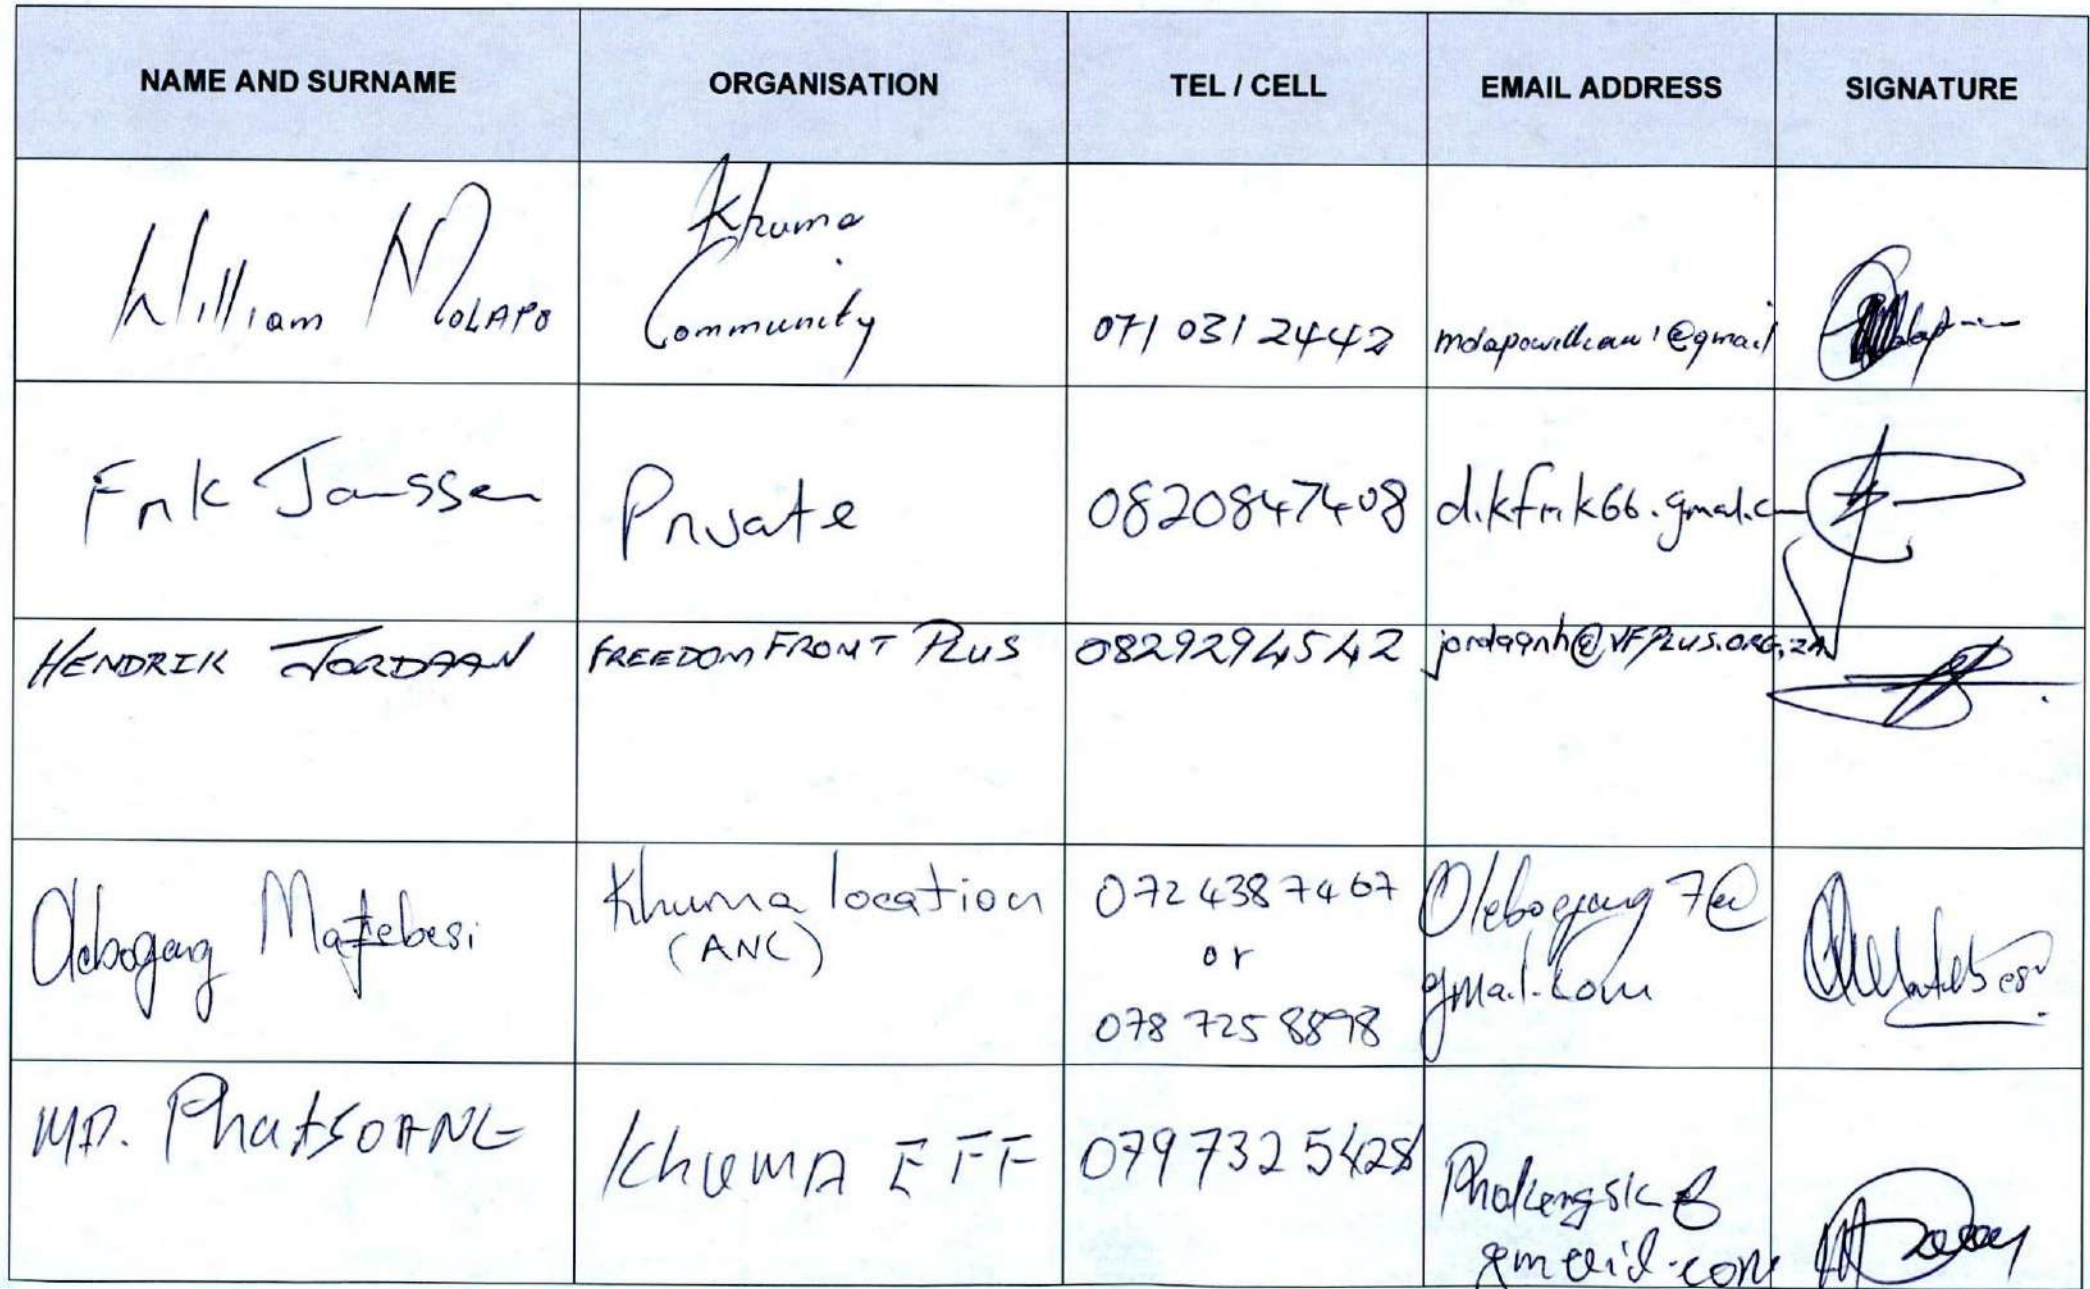 NAME AND SURNAME ORGANISATION TEL / CELL EMAIL ADDRESS SIGNATURE
William MOLAPO Khuma Community 071 031 2442 molapowilliam1@gmail
Frik Janssen Private 0820847408 dikfrik66.gmail.c
HENDRIK JORDAAN FREEDOM FRONT PLUS 0829294542 jordaanh@VFPLUS.ORG.ZA
Olebogang Matebesi Khuma location (ANC) 072 438 7467 or 078 725 8898 Olebogang 7@ gmail.com
MP. PhatSOANE KhumA EFF 079 732 5428 gmail.com